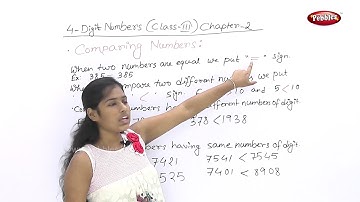 Pebbles
4-Digit Numbers (Class-III) Chapter-2
Comparing Numbers:
When two numbers are equal we put "=" sign.
Ex: 385 = 385
compare two different numbers we put
< sign. 10 and 5 < 10
different number of digit
378 < 1938
numbers having same numbers of digit
7421 7541 < 7545
525 7401 < 8908